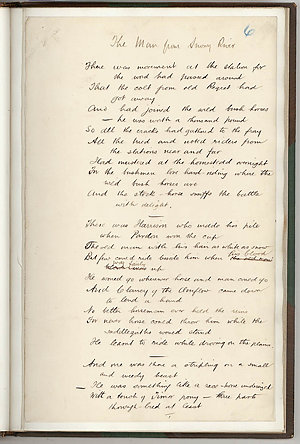 6
The Man from Snowy River
There was movement at the station for
the word had passed around
That the colt from old Regret had
got away
And had joined the wild bush horses
— he was worth a thousand pound
So all the cracks had gathered to the fray
All the tried and noted riders from
the stations near and far
Had mustered at the homestead overnight
For the bushmen love hard riding where the
wild bush horses are
And the stock-horse snuffs the battle
with delight.
There was Harrison who made his pile
when Pardon won the cup
The old man with his hair as white as snow
his blood
But few could ride beside him when
was fairly
up
He would go wherever horse and man could go
And Clancy of the Overflow came down
to lend a hand
No better horseman ever held the reins
For never horse could throw him while the
saddlegirths would stand
He learnt to ride while droving on the plains
And one was there a stripling on a small
and weedy beast
He was something like a race-horse undersized
With a touch of Timor pony — three parts
through-bred at least